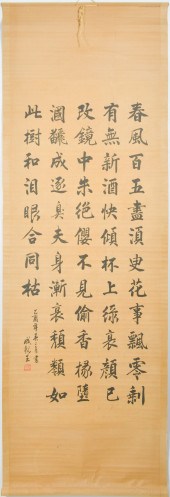 春風百五盡須臾花事飄零剩
有無新酒快傾杯上綠衰顏已
改鏡中朱絕纓不見偷香掾墮
溷翻成逐臭夫身漸衰頹類如
此樹和淚眼合同枯